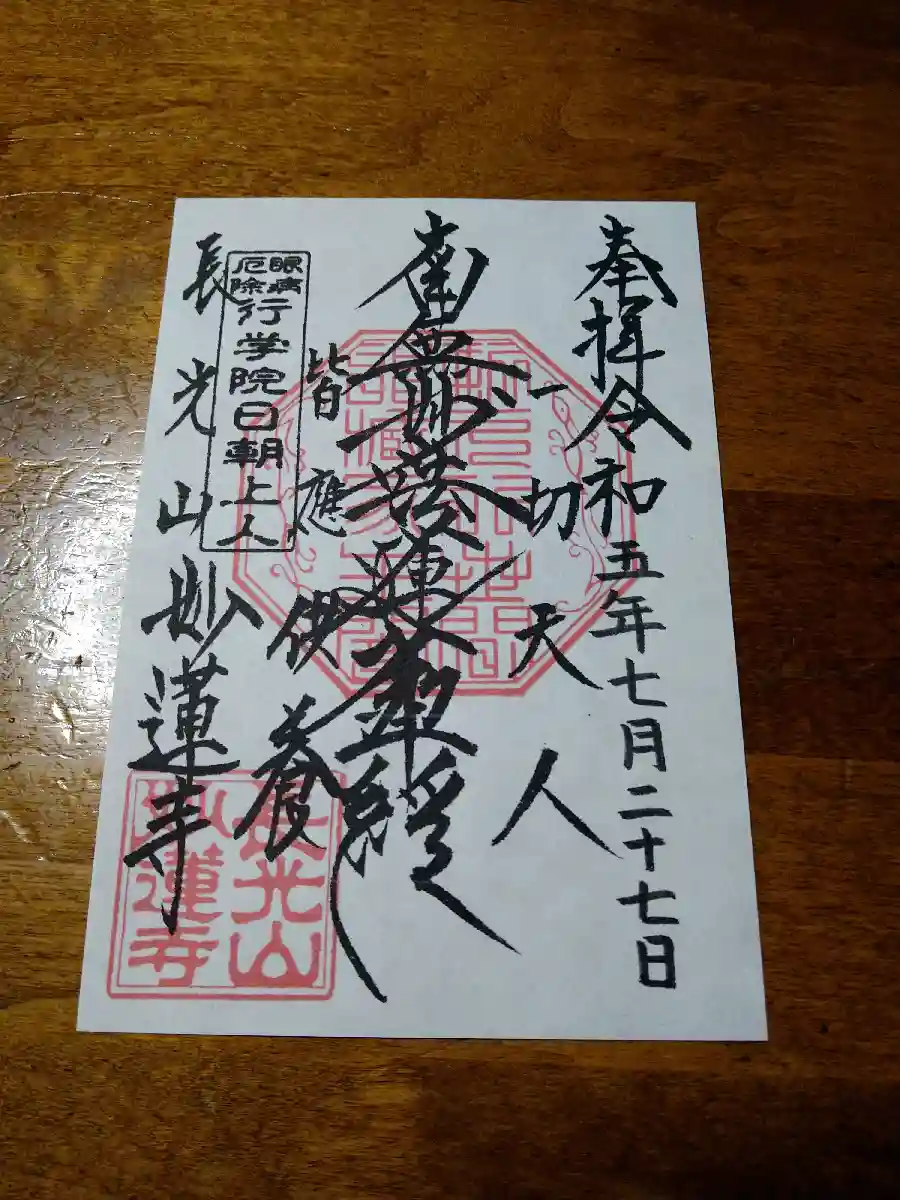 奉拝令和五年七月二十七日
一切天人
南無妙法蓮華経
皆應供養
眼病
厄除
行学院日朝上人
長光山妙蓮寺
長光山
妙蓮寺